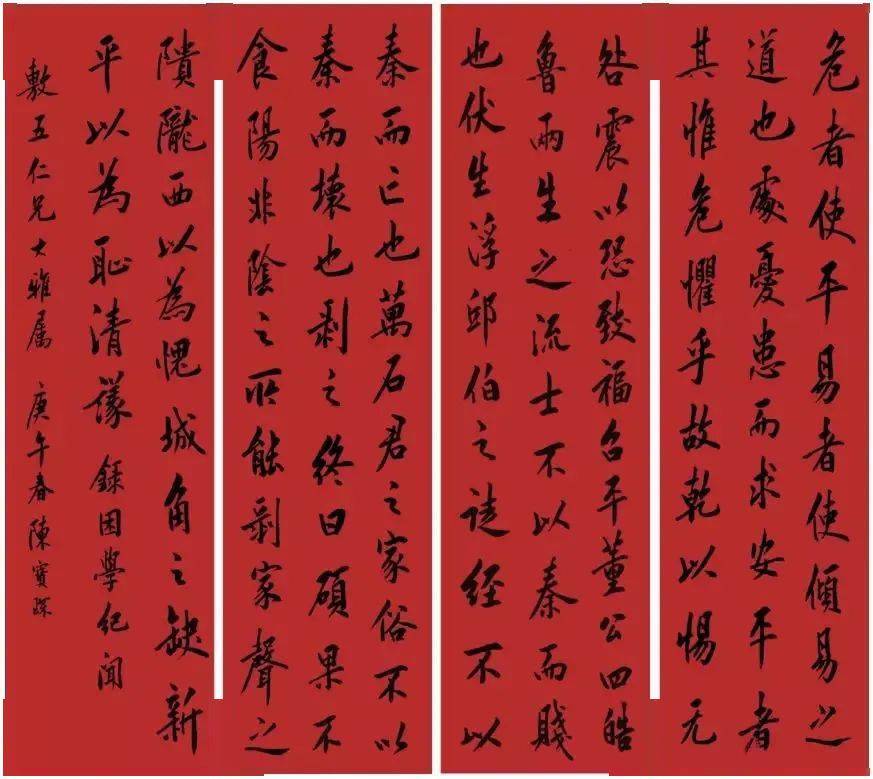 危者使平易者使傾易之
道也處憂患而求安平者
其惟危懼乎故乾以惕无
咎震以恐致福召平董公四皓
魯兩生之流士不以秦而賤
也伏生浮邱伯之徒經不以
秦而亡也萬石君之家俗不以
秦而壞也剥之終曰碩果不
食陽非陰之所能剥家聲之
隤隴西以為愧城角之缺新
平以為恥清議 錄困學紀聞
敷五仁兄大雅屬 庚午春陳寶琛